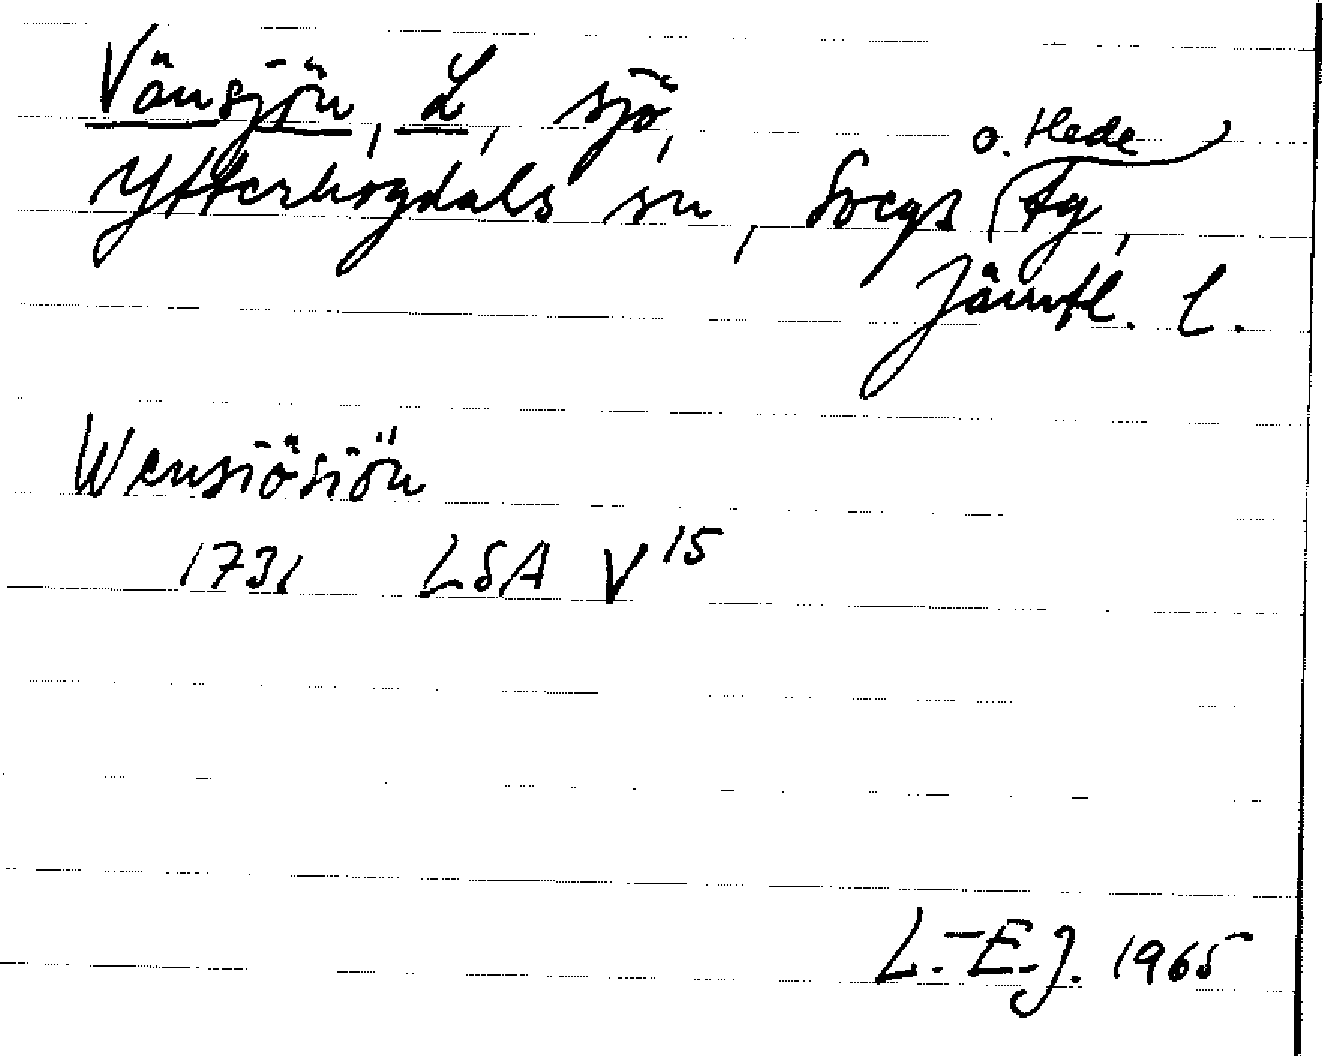 Vänsjön, L, sjö,
Ytterhogdals sn, Svegs o. Hede tg,
Jämtl. l.
Wensiösiön
1731 LSA V15
L.-E.J. 1965